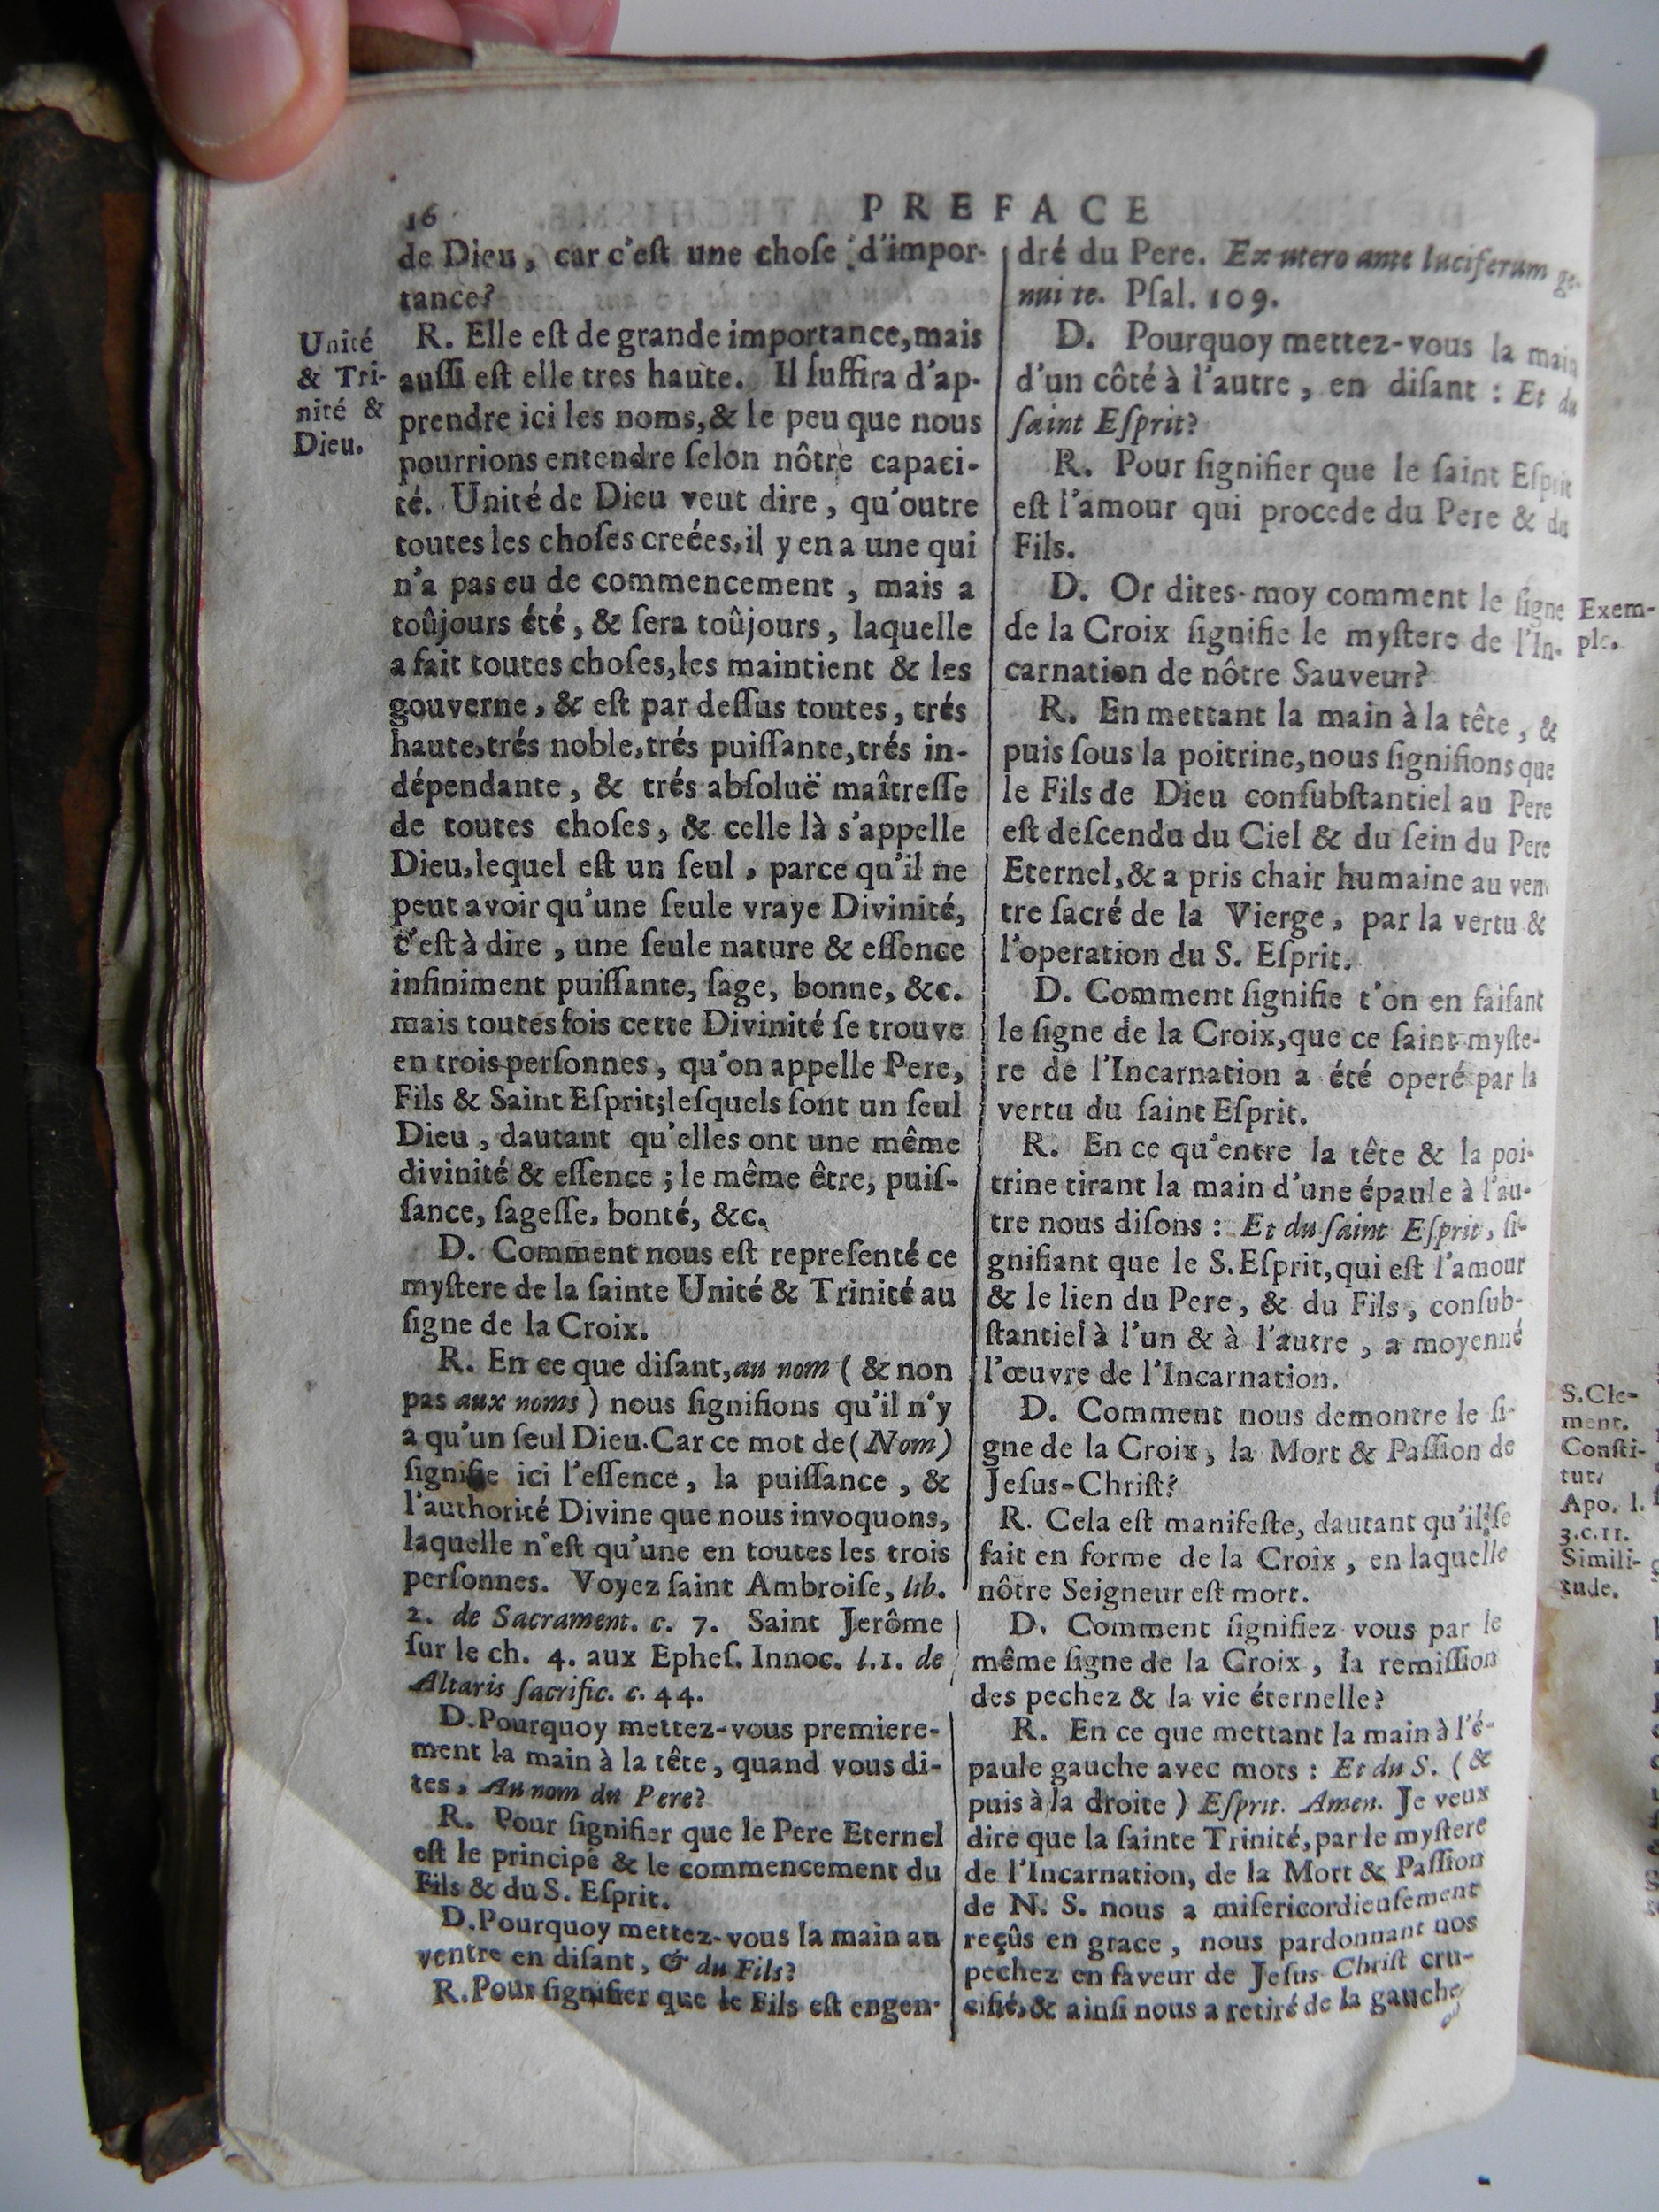 16
PREFACE
de Dieu, car c'eſt une choſe d'impor-
tance?
Unité
& Tri-
nité &
Dieu.
R. Elle eſt de grande importance, mais
auſſi eſt elle tres haute. Il ſuffira d'ap-
prendre ici les noms, & le peu que nous
pourrions entendre ſelon nôtre capaci-
té. Unité de Dieu veut dire, qu'outre
toutes les choſes creées, il y en a une qui
n'a pas eu de commencement, mais a
toûjours été, & ſera toûjours, laquelle
a fait toutes choſes, les maintient & les
gouverne, & eſt par deſſus toutes, trés
haute, trés noble, trés puiſſante, trés in-
dépendante, & trés abſoluë maîtreſſe
de toutes choſes, & celle là s'appelle
Dieu, lequel eſt un ſeul, parce qu'il ne
peut avoir qu'une ſeule vraye Divinité,
c'eſt à dire, une ſeule nature & eſſence
infiniment puiſſante, ſage, bonne, &c.
mais toutesfois cette Divinité ſe trouve
en trois perſonnes, qu'on appelle Pere,
Fils & Saint Eſprit; leſquels ſont un ſeul
Dieu, dautant qu'elles ont une même
divinité & eſſence; le même être, puiſ-
ſance, ſageſſe, bonté, &c.
D. Comment nous eſt repreſenté ce
myſtere de la ſainte Unité & Trinité au
ſigne de la Croix.
R. En ce que diſant, au nom ( & non
pas aux noms ) nous ſignifions qu'il n'y
a qu'un ſeul Dieu. Car ce mot de (Nom)
ſignifie ici l'eſſence, la puiſſance, &
l'authorité Divine que nous invoquons,
laquelle n'eſt qu'une en toutes les trois
perſonnes. Voyez ſaint Ambroiſe, lib.
2. de Sacrament. c. 7. Saint Jerôme
ſur le ch. 4. aux Epheſ. Innoc. l.1. de
Altaris ſacrific. c. 44.
D. Pourquoy mettez-vous premiere-
ment la main à la tête, quand vous di-
tes, Au nom du Pere?
R. Pour ſignifier que le Pere Eternel
eſt le principe & le commencement du
Fils & du S. Eſprit.
D. Pourquoy mettez-vous la main au
ventre en diſant, & du Fils?
R. Pour ſignifier que le Fils eſt engen-
dré du Pere. Ex utero ante luciferum ge-
nui te. Pſal. 109.
D. Pourquoy mettez-vous la main
d'un côté à l'autre, en diſant : Et du
ſaint Eſprit?
R. Pour ſignifier que le ſaint Eſprit
eſt l'amour qui procede du Pere & du
Fils.
D. Or dites-moy comment le ſigne
de la Croix ſignifie le myſtere de l'In-
carnation de nôtre Sauveur?
Exem-
ple.
R. En mettant la main à la tête, &
puis ſous la poitrine, nous ſignifions que
le Fils de Dieu conſubſtantiel au Pere
eſt deſcendu du Ciel & du ſein du Pere
Eternel, & a pris chair humaine au ven-
tre ſacré de la Vierge, par la vertu &
l'operation du S. Eſprit.
D. Comment ſignifie t'on en faiſant
le ſigne de la Croix, que ce ſaint myſte-
re de l'Incarnation a été operé par la
vertu du ſaint Eſprit.
R. En ce qu'entre la tête & la poi-
trine tirant la main d'une épaule à l'au-
tre nous diſons : Et du ſaint Eſprit, ſi-
gnifiant que le S. Eſprit, qui eſt l'amour
& le lien du Pere, & du Fils, conſub-
ſtantiel à l'un & à l'autre, a moyenné
l'œuvre de l'Incarnation.
D. Comment nous demontre le ſi-
gne de la Croix, la Mort & Paſſion de
Jeſus-Chriſt?
S. Cle-
ment.
Conſti-
tut.
Apo. l.
3. c. 11.
Simili-
tude.
R. Cela eſt manifeſte, dautant qu'il ſe
fait en forme de la Croix, en laquelle
nôtre Seigneur eſt mort.
D. Comment ſignifiez vous par le
même ſigne de la Croix, la remiſſion
des pechez & la vie éternelle?
R. En ce que mettant la main à l'é-
paule gauche avec mots : Et du S. ( &
puis à la droite ) Eſprit. Amen. Je veux
dire que la ſainte Trinité, par le myſtere
de l'Incarnation, de la Mort & Paſſion
de N. S. nous a miſericordieuſement
reçûs en grace, nous pardonnant nos
pechez en faveur de Jeſus Chriſt cru-
cifié, & ainſi nous a retiré de la gauche